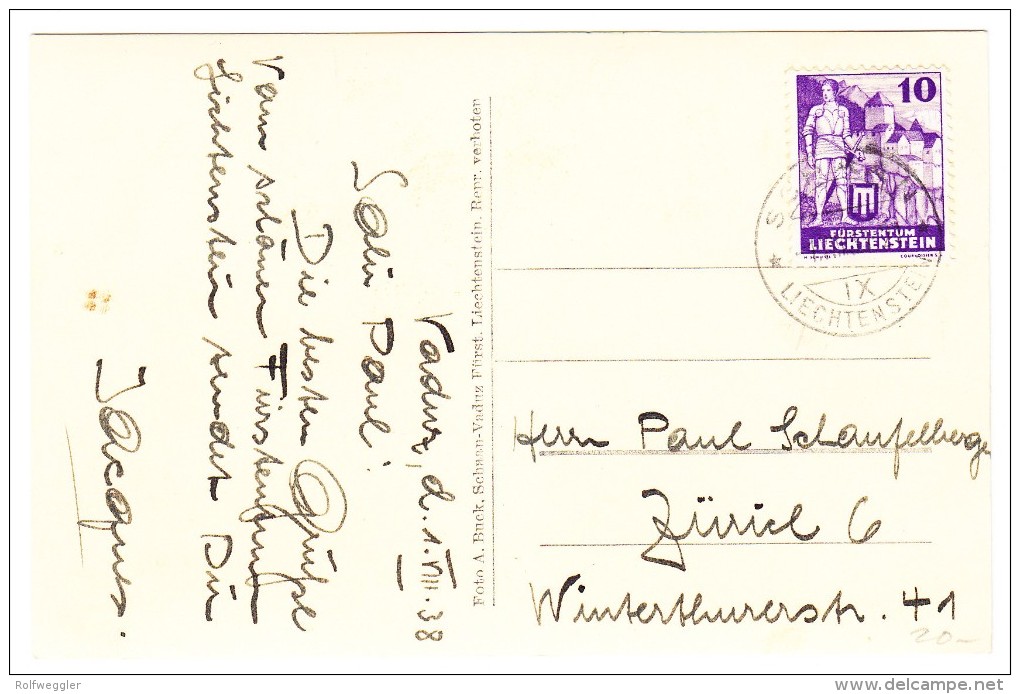 Vaduz, d. 1. VIII. 38
Salü Paul!
Die besten Grüsse
vom schönen Fürstentum
Liechtenstein sendet Dir
Jacques.
Foto A. Buck, Schaan-Vaduz Fürst. Liechtenstein. Repr. verboten
10
FÜRSTENTUM
LIECHTENSTEIN
IX
LIECHTENSTEIN
Herrn Paul Schaufelberger
Zürich 6
Winterthurerstr. 41
20-
Rolfweggler
delcampe.net